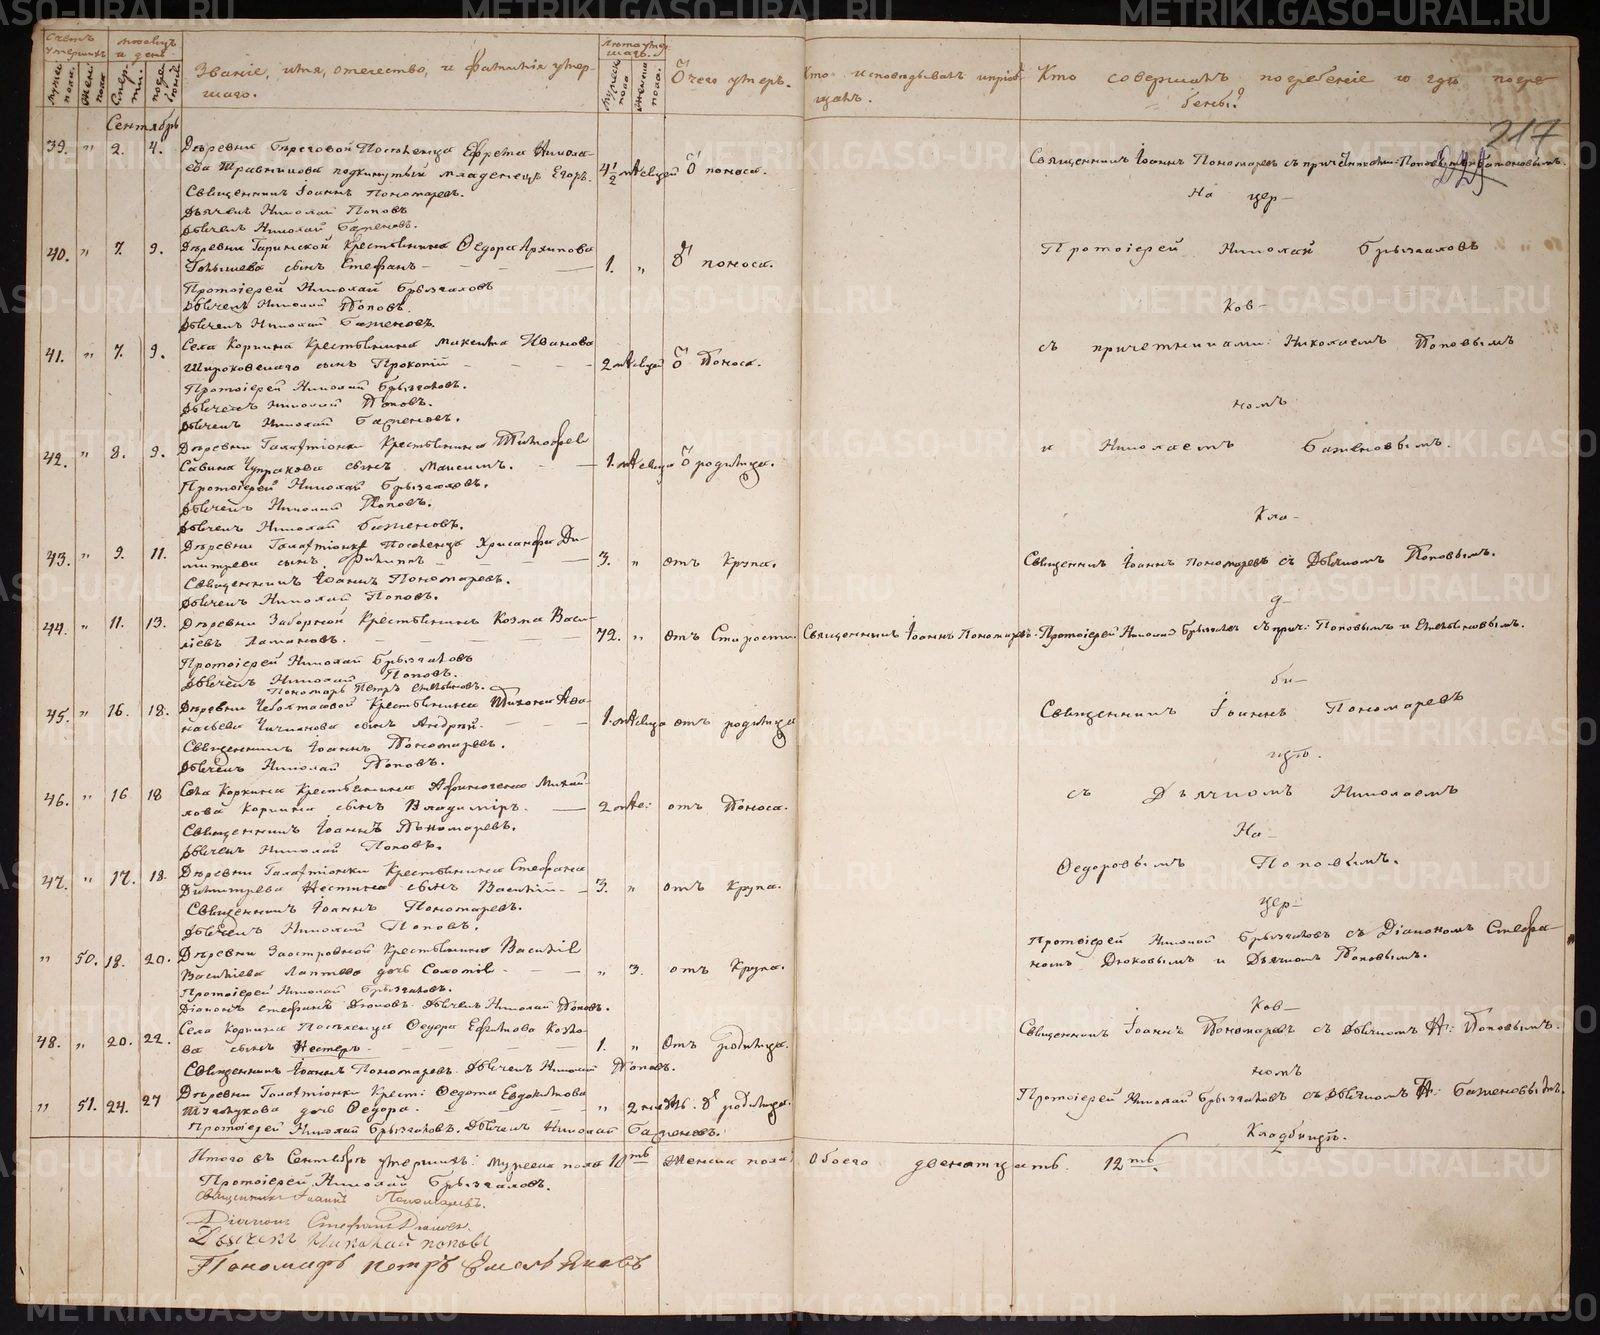 METRIKI.GASO-URAL.RU
Счетъ умершихъ
мѣсяцъ и день
Мужеска пола.
Женска пола.
Смерти.
погребенія
Званіе, имя, отечество, и фамилія умершаго.
Лѣта умершаго.
Мужеска пола
Женска пола.
Отъ чего умеръ.
Кто исповѣдывалъ и пріобщалъ.
Кто совершалъ погребеніе и гдѣ погребены?
217
Сентябрь
39. " 2. 4. Деревни Береговой Поселенца Ефрема Никола-
ева Травникова подкинутый младенецъ Егоръ. 4½ мѣсяцей Отъ поноса.
Священникъ Іоаннъ Пономаревъ
На цер-
Священникъ Іоаннъ Пономаревъ.
Дьячекъ Николай Поповъ
Дьячекъ Николай Баженовъ.
40. " 7. 9. Деревни Гаринской Крестьянина Ѳедора Архипова
сынъ Стефанъ 1. " Отъ поноса.
Протоіерей Николай Брызгаловъ
Протоіерей Николай Брызгаловъ
Дьячекъ Николай Поповъ.
Дьячекъ Николай Баженовъ.
Ков-
41. " 7. 9. Села Коркина Крестьянина Никита Иванова
Широковскаго сынъ Прокопій 2 мѣсяцей Отъ Поноса.
съ причетниками: Николаемъ Поповымъ
Протоіерей Николай Брызгаловъ.
Дьячекъ Николай Поповъ.
Дьячекъ Николай Баженовъ.
номъ
42. " 8. 9. Деревни Галактіонки Крестьянина Тимофея
Савина Чупракова сынъ Максимъ. 1. мѣсяца Отъ родимца.
и Николаемъ Баженовымъ.
Протоіерей Николай Брызгаловъ.
Дьячекъ Николай Поповъ.
Дьячекъ Николай Баженовъ.
Кла-
43. " 9. 11. Деревни Галактіонки Поселенца Хрисанфа Ди-
митрева сынъ Филиппъ 3. " отъ Крупа.
Священникъ Іоаннъ Пономаревъ съ Дьячкомъ Поповымъ.
Священникъ Іоаннъ Пономаревъ.
Дьячекъ Николай Поповъ.
д-
44. " 11. 13. Деревни Заборной Крестьянинъ Козма Васи-
ліевъ Ламановъ. 72. " Отъ Старости. Священникъ Іоаннъ Пономаревъ. Протоіерей Николай Брызгаловъ съ прич: Поповымъ и Емельяновымъ.
Протоіерей Николай Брызгаловъ
Дьячекъ Николай Поповъ.
Пономарь Петръ Емельяновъ.
би-
45. " 16. 18. Деревни Крестьянина Тихона Аѳа-
насьева сынъ Андрей 1. мѣсяца отъ родимца
Священникъ Іоаннъ Пономаревъ
Священникъ Іоаннъ Пономаревъ.
Дьячекъ Николай Поповъ.
щѣ.
46. " 16 18 Села Коркина Крестьянина Афиногена Михай-
лова Коркина сынъ Владиміръ. 2 мѣс: отъ Поноса.
съ Дьячкомъ Николаемъ
Священникъ Іоаннъ Пономаревъ.
Дьячекъ Николай Поповъ.
На-
47. " 17. 18. Деревни Галактіонки Крестьянина Стефана
Димитрева сынъ Василій 3. " отъ Крупа.
Ѳедоровымъ Поповымъ.
Священникъ Іоаннъ Пономаревъ.
Дьячекъ Николай Поповъ.
цер-
" 50. 18. 20. Деревни Заостровной Крестьянина Василія
Василіева Лаптева дочь Соломія " 3. отъ Крупа.
Протоіерей Николай Брызгаловъ съ Діакономъ Стефа-
номъ Дюковымъ и Дьячкомъ Поповымъ.
Протоіерей Николай Брызгаловъ.
Діаконъ Стефанъ Дюковъ. Дьячекъ Николай Поповъ.
Ков-
48. " 20. 22. Села Коркина Поселенца Ѳедора Ефимова Козло-
ва сынъ Нестеръ 1. " Отъ родимца.
Священникъ Іоаннъ Пономаревъ съ Дьячкомъ Н: Поповымъ.
Священникъ Іоаннъ Пономаревъ. Дьячекъ Николай Поповъ.
номъ
" 51. 24. 27 Деревни Галактіонки Крест: Ѳедота Евдокимова
дочь Ѳедора. " 2 Отъ родимца.
Протоіерей Николай Брызгаловъ съ Дьячкомъ Н: Баженовымъ.
Протоіерей Николай Брызгаловъ. Дьячекъ Николай Баженовъ.
Кладбищѣ.
Итого въ Сентябрѣ умершихъ: Мужеска пола 10ть Женска пола Обоего двенатцать. 12ть.
Протоіерей Николай Брызгаловъ.
Священникъ Іоаннъ Пономаревъ.
Діаконъ Стефанъ Дюковъ.
Дьячекъ Николай Поповъ
Пономарь петръ Емельяновъ